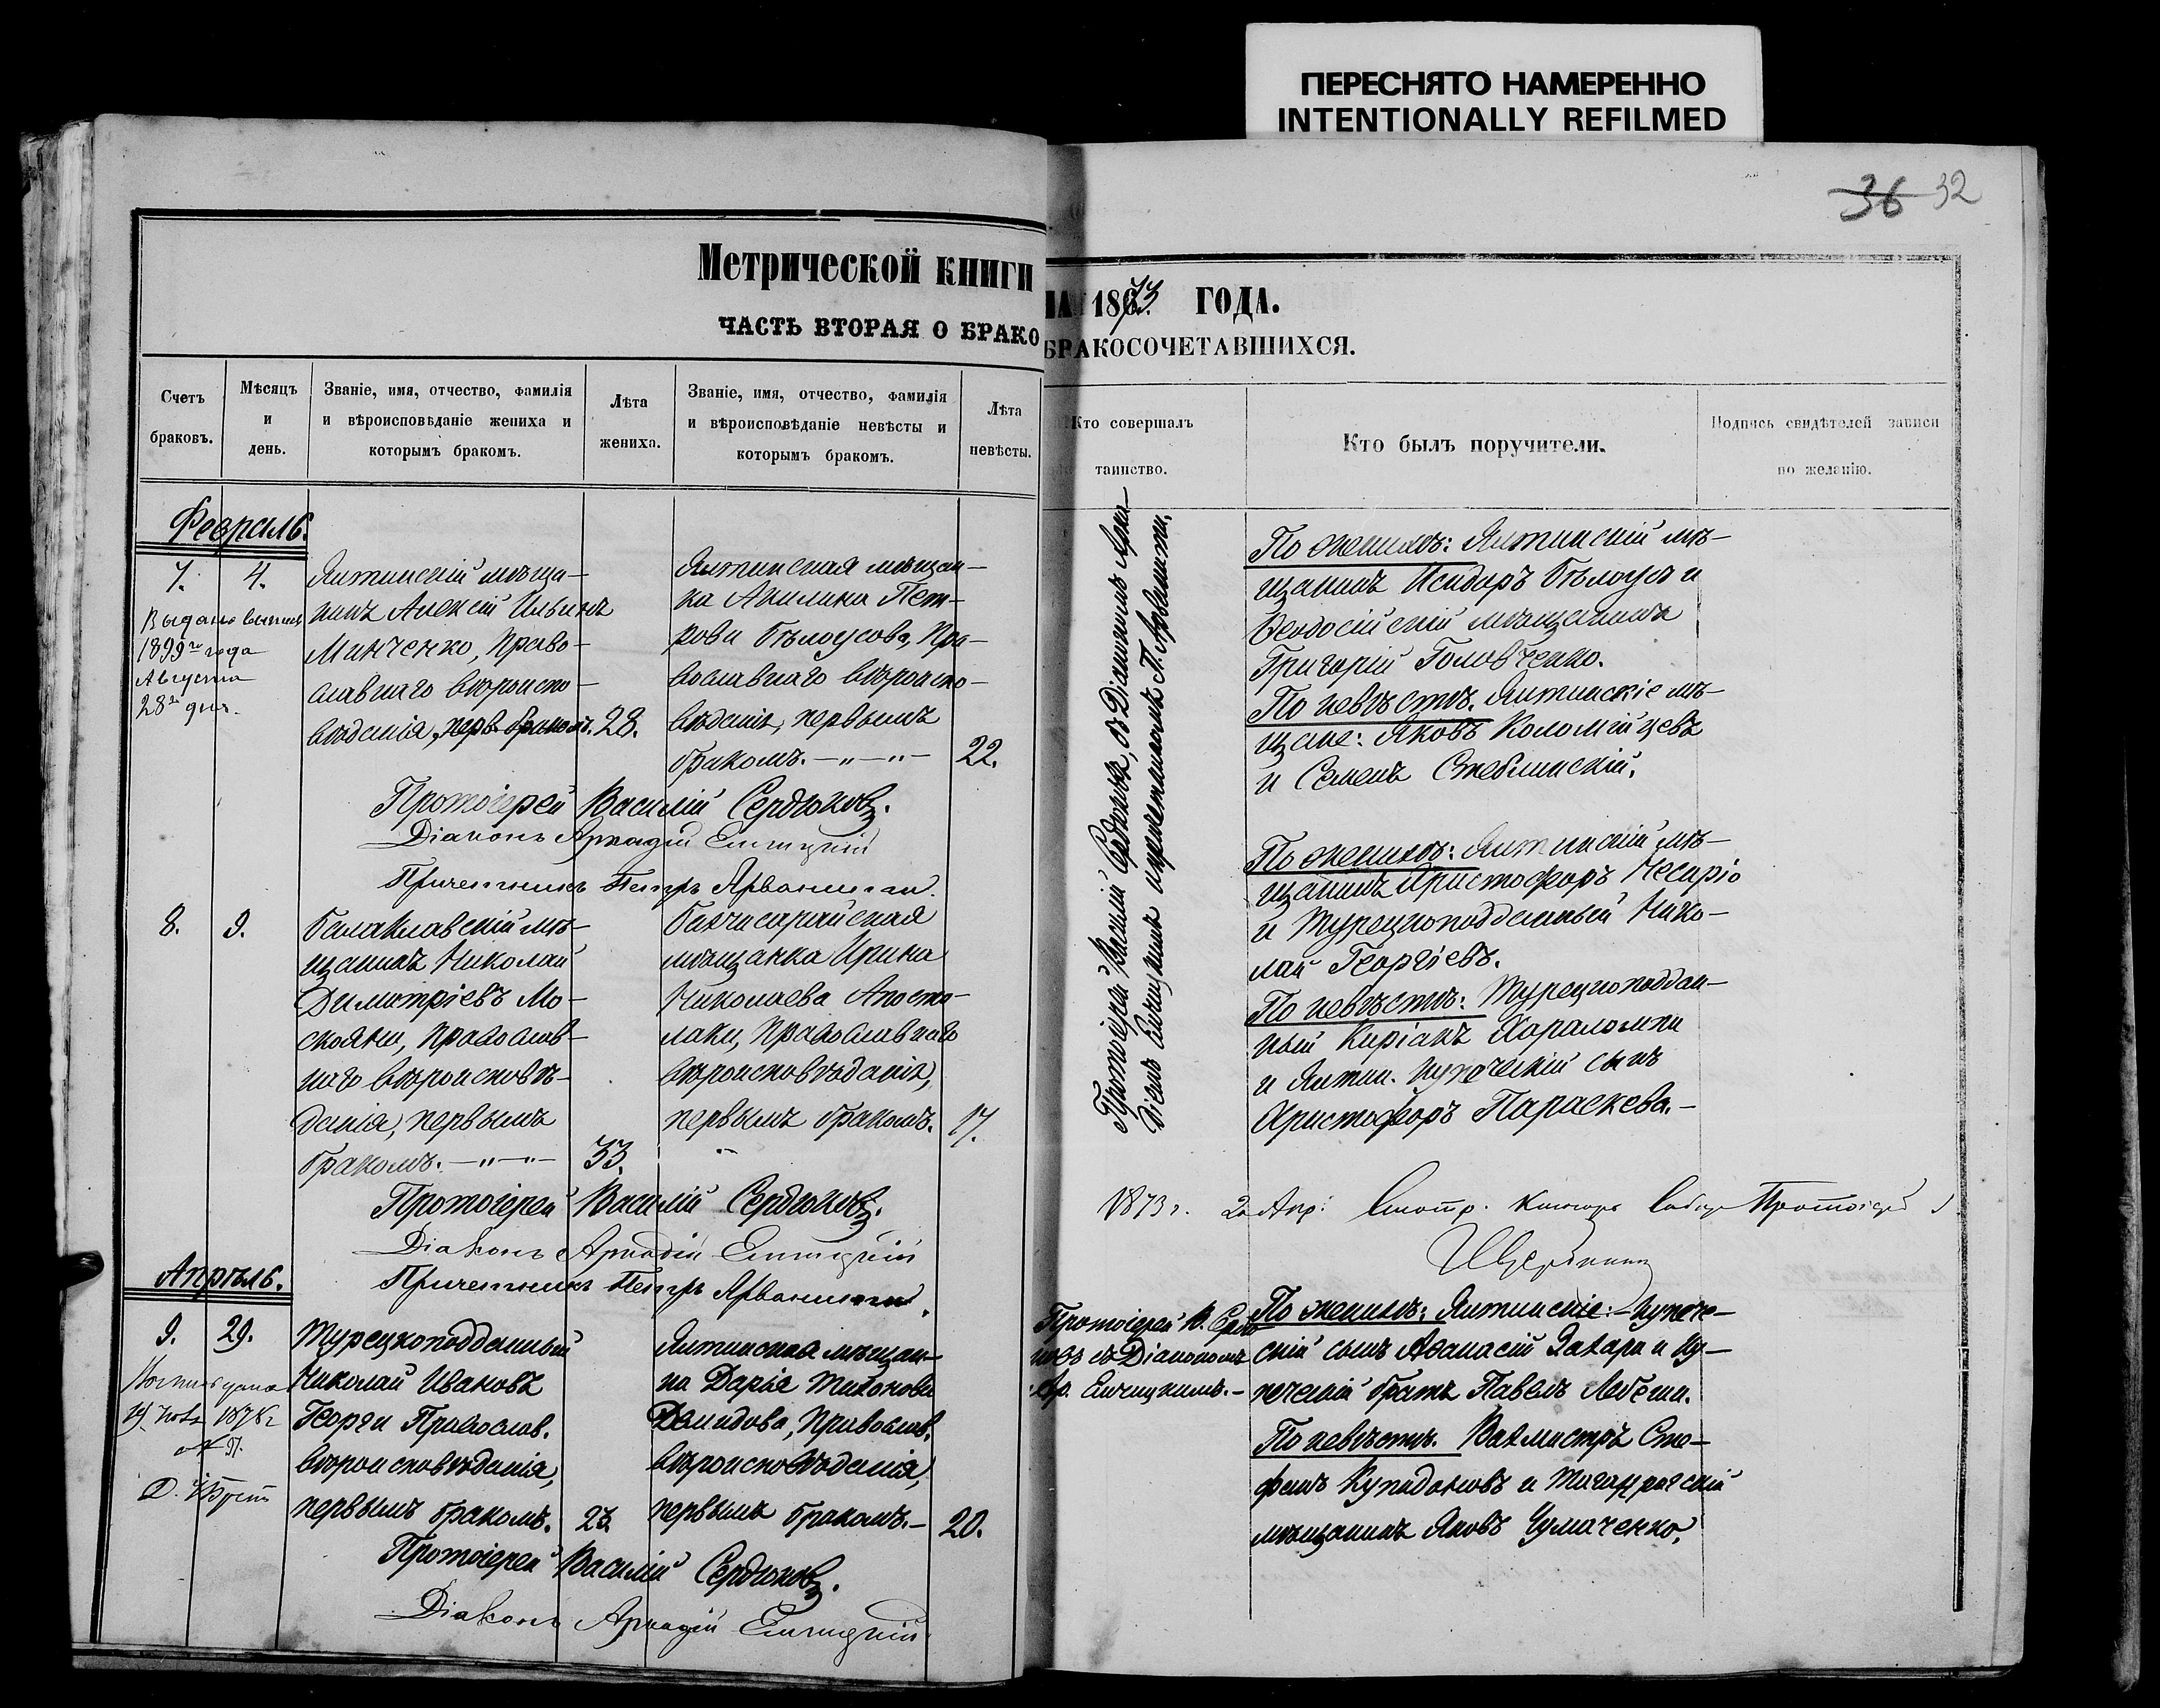 ПЕРЕСНЯТО НАМЕРЕННО
INTENTIONALLY REFILMED
36 32
Метрической книги
НА 1873 ГОДА.
ЧАСТЬ ВТОРАЯ О БРАКО
БРАКОСОЧЕТАВШИХСЯ.
Счетъ браковъ.
Мѣсяцъ и день.
Званіе, имя, отчество, фамилія
и вѣроисповѣданіе жениха и
которымъ бракомъ.
Лѣта жениха.
Званіе, имя, отчество, фамилія
и вѣроисповѣданіе невѣсты и
которымъ бракомъ.
Лѣта невѣсты.
Кто совершалъ
таинство.
Кто былъ поручители.
Подпись свидѣтелей записи
по желанію.
Февраль.
7. 4.
Выдана выпись
1899го года
Августа
28го дня.
Ялтинскій мѣща-
нинъ Алексій Ильинъ
Манченко, Право-
славнаго вѣроиспо-
вѣданія, перв. бракомъ. 28.
Ялтинская мѣщан-
ка Акилина Пет-
рова Бѣлоусова, Пра-
вославнаго вѣроиспо-
вѣданія, первымъ
бракомъ. -"-"- 22.
Протоіерей Василій Сердюковъ, съ Діакономъ Арка-
діемъ и причетникомъ П. Арванити.
По женихѣ: Ялтинскій мѣ-
щанинъ Исидоръ Бѣлоусъ и
Ѳеодосійскій мѣщанинъ
Григорій Головченко.
По невѣстѣ. Ялтинскіе мѣ-
щане: Яковъ Коломійцевъ
и Семенъ Стеблинскій.
Протоіерей Василій Сердюковъ.
Діаконъ Аркадій
Причетникъ Петръ Арванити.
8. 9.
Балаклавскій мѣ-
щанинъ Николай
Димитріевъ Мо-
скояни, Православ-
наго вѣроисповѣ-
данія, первымъ
бракомъ. -"-"- 33.
Бахчисарайская
мѣщанка Ирина
Николаева Апосто-
лаки, Православнаго
вѣроисповѣданія,
первымъ бракомъ. 17.
По женихѣ: Ялтинскій мѣ-
щанинъ Христофоръ Чесаріо
и Турецкоподданный Нико-
лай Георгіевъ.
По невѣстѣ: Турецкоподдан-
ный Киріакъ Хараломпи
и Ялтин. купеческій сынъ
Христофоръ Параскева.-
Протоіерей Василій Сердюковъ.
Діаконъ Аркадій
Причетникъ Петръ Арванити.
1873 г. 2 Апр: Протоіерей
Апрѣль.
9. 29.
1878 г
Турецкоподданный
Николай Ивановъ
Георги Православ.
вѣроисповѣданія,
первымъ бракомъ. 23.
Ялтинская мѣщан-
ка Дарья Тихонова
Демидова, Православ.
вѣроисповѣданія,
первымъ бракомъ.- 20.
Протоіерей В. Сердю-
ковъ съ Діакономъ
По женихѣ: Ялтинскіе:- купече-
скій сынъ Аѳанасій Захари и ку-
печескій братъ Павелъ
По невѣстѣ. Вахмистръ Сте-
фанъ Купидоновъ и Таганрогскій
мѣщанинъ Яковъ Чумаченко.
Протоіерей Василій Сердюковъ.
Діаконъ Аркадій